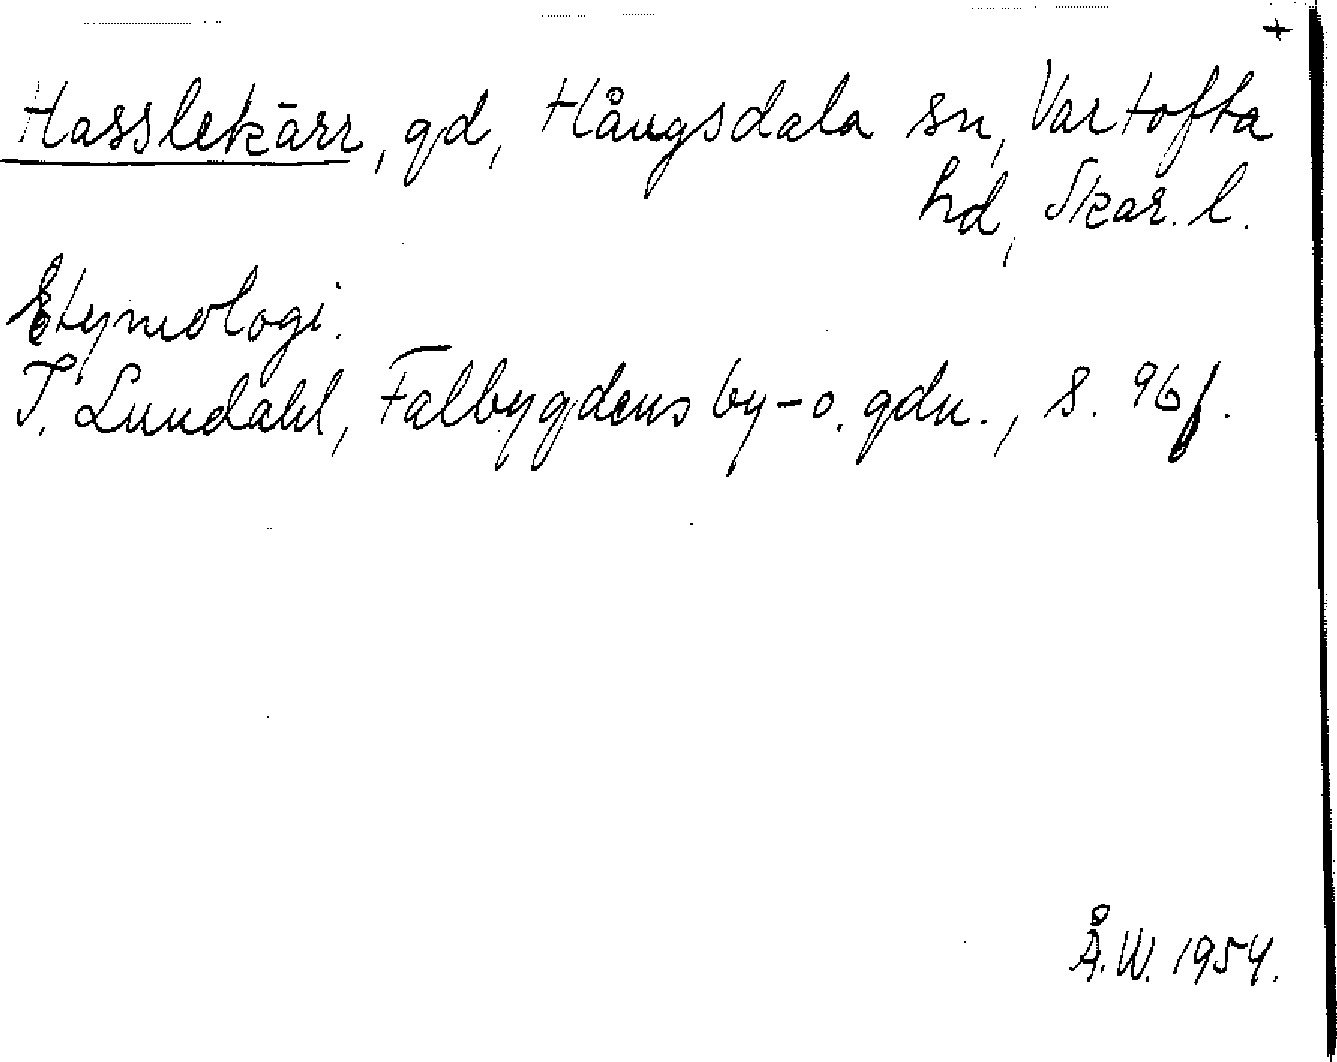 +
Hasslekärr, gd, Hångsdala sn, Vartofta
hd, Skar. l.
Etymologi.
I. Lundahl, Falbygdens by- o. gdn., s. 96 f.
Å.W. 1954.